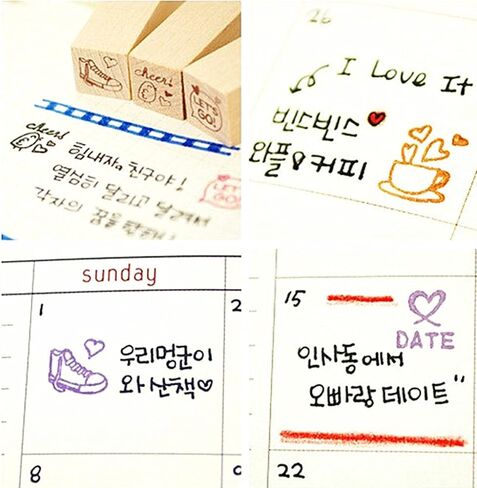 cheer!
LET'S
GO!
cheer!
힘내자, 친구야!
열심히 달리고 달려서
LET'S
GO!
각자의 꿈을
26
I Love It
빈스빈스
와플 커피
sunday
1
2
우리멍군이
와 산책
8
15
DATE
인사동에서
오빠랑 데이트"
22